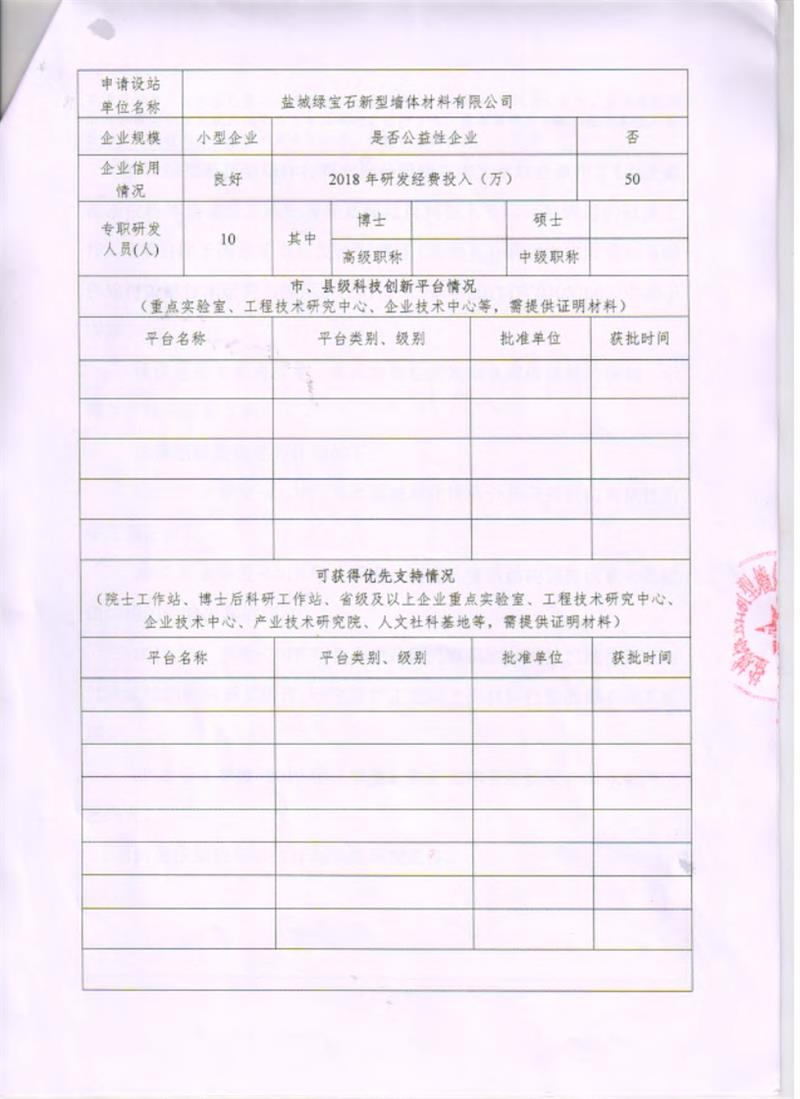 申请设站
单位名称
盐城绿宝石新型墙体材料有限公司
企业规模 小型企业 是否公益性企业 否
企业信用
情况
良好 2018 年研发经费投入（万） 50
专职研发
人员(人)
10 其中 博士 硕士
高级职称 中级职称
市、县级科技创新平台情况
（重点实验室、工程技术研究中心、企业技术中心等，需提供证明材料）
平台名称 平台类别、级别 批准单位 获批时间
可获得优先支持情况
（院士工作站、博士后科研工作站、省级及以上企业重点实验室、工程技术研究中心、
企业技术中心、产业技术研究院、人文社科基地等，需提供证明材料）
平台名称 平台类别、级别 批准单位 获批时间